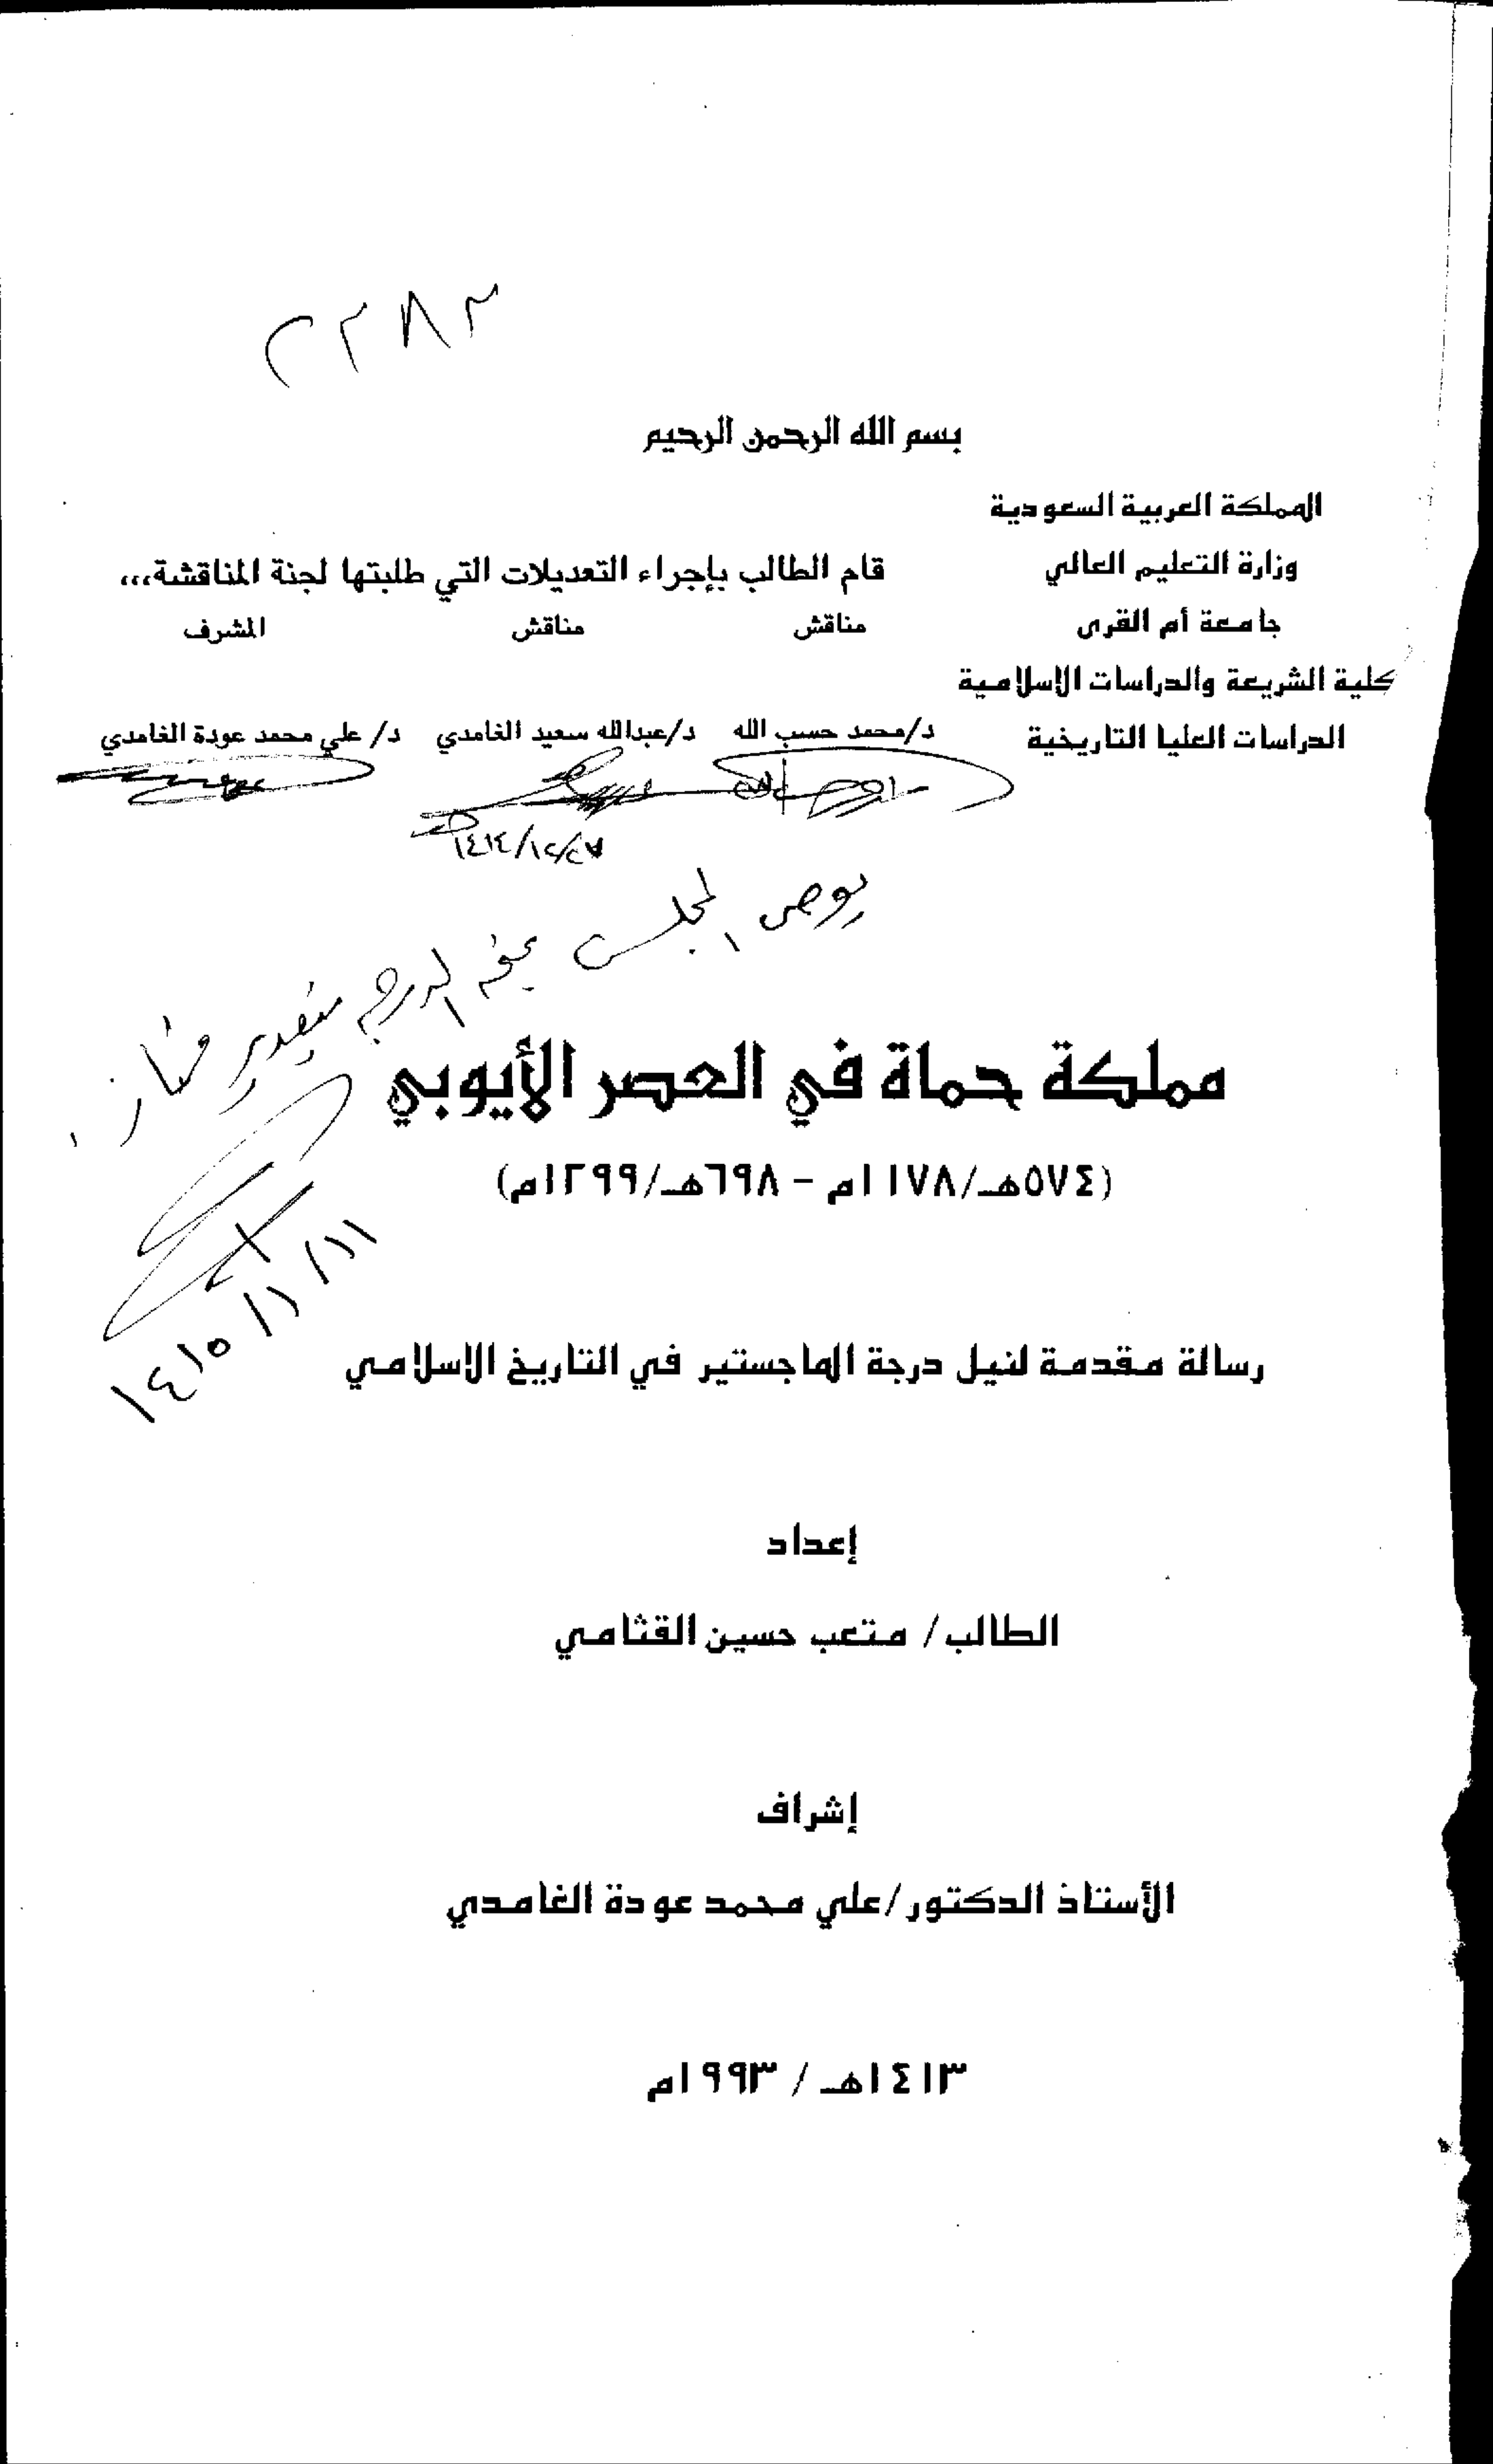 ٢٢٨٣
بسم الله الرحمن الرحيم
المملكة العربية السعودية
وزارة التعليم العالي
جامعة أم القرى
كلية الشريعة والدراسات الإسلامية
الدراسات العليا التاريخية
قام الطالب بإجراء التعديلات التي طلبتها لجنة المناقشة،،،
مناقش مناقش المشرف
د/محمد حسب الله د/عبدالله سعيد الغامدي د/ علي محمد عودة الغامدي
يوصى المجلس بمنحه الدرجة بتقدير ممتاز.
مملكة حماة في العصر الأيوبي
(٥٧٤هـ/١١٧٨م - ٦٩٨هـ/١٢٩٩م)
رسالة مقدمة لنيل درجة الماجستير في التاريخ الإسلامي
إعداد
الطالب/ متعب حسين القثامي
إشراف
الأستاذ الدكتور/علي محمد عودة الغامدي
١٤١٣هـ / ١٩٩٣م